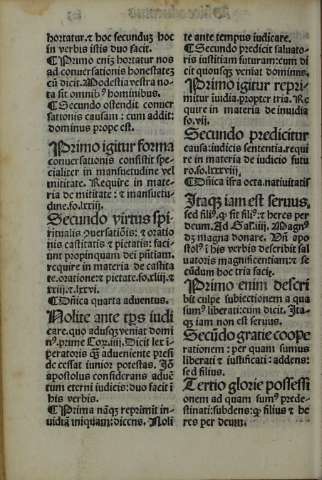 hortatur. ⁊ hoc secundũ hoc
in verbis istis duo facit.
¶ Primo enĩ hortatur nos
ad conuersationis honestatẽ
cũ dicit. Modestia vestra no
ta sit omnibꝰ hominibus.
¶ Secundo ostendit conuer
sationis causam: cum addit:
dominus prope est.
Primo igitur forma
conuersationis consistit spe-
cialiter in mansuetudine vel
mititate. Require in mate-
ria de mititate: ⁊ mansuetu-
dine. fo. lxxiij.
Secundo virtus spi-
ritualis ↄuersatiõis: ⁊ oratio
nis castitatis ⁊ pietatis: faci-
unt propinquam dei pñtiam.
require in materia de castita
te. orationeꝫ pietate. fo. xlij ⁊
xxiij. ⁊. lxxvi.
¶ Dñica quarta aduentus.
Nolite ante tꝑs iudi
care. quo adusqꝫ veniat domi
nꝰ. prime Cor. iiij. Dicit lex i-
peratoris ꝙ adueniente presi
de cessat iunior potestas. Iõ
apostolus considerans aduẽ
tum eterni iudicis: duo facit ĩ
his verbis.
¶ Primo nãqꝫ reprimit in-
uidiã iniquam: dicens. Noli
te ante tempus iudicare.
¶ Secundo predicit saluato-
ris iustitiam futuram: cum di
cit quousqꝫ veniat dominus.
Primo igitur repri-
mitur iuidia. propter tria. Re
quire in materia de inuidia
fo. vij.
Secundo predicitur
causa: iudicis sententia. requi
re in materia de iudicio futu
ro. fo. lxxviij.
¶ Dñica ifra octa. natiuitatis
Itaqꝫ iam est seruus,
sed filiꝰ. ꝙ sit filiꝰ: ⁊ heres per
deum. Ad Gal. iiij. Magnꝰ
dꝫ magna donare. Vñ apo
stolꝰ ĩ his verbis describit sal
uatoris magnificentiam: ⁊ se
cũdum hoc tria facit.
Primo enim descri
bit culpe subiectionem a qua
sumꝰ liberati: cum dicit. Ita-
qꝫ iam non est seruus.
Secũdo gratie coope
rationem: per quam sumus
liberati ⁊ iustificati: addens:
sed filius.
Tertio glorie possessi
onem ad quam sumꝰ prede-
stinati: subdens: ꝙ filius ⁊ he
res per deum.